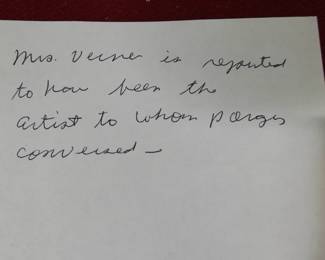 Mrs. Verner is reputed
to have been the
artist to whom Porgy
conversed –